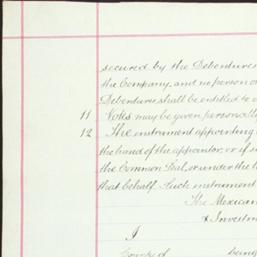 secured by the Debentures
the Company and no person or
Debentures shall be entitled to
11 Notes may be given personally
12 The instrument appointing
the hand of the appointor, or if
the Common Seal, or under the
that behalf. Such instrument
The Mexican
& Investm
I
being